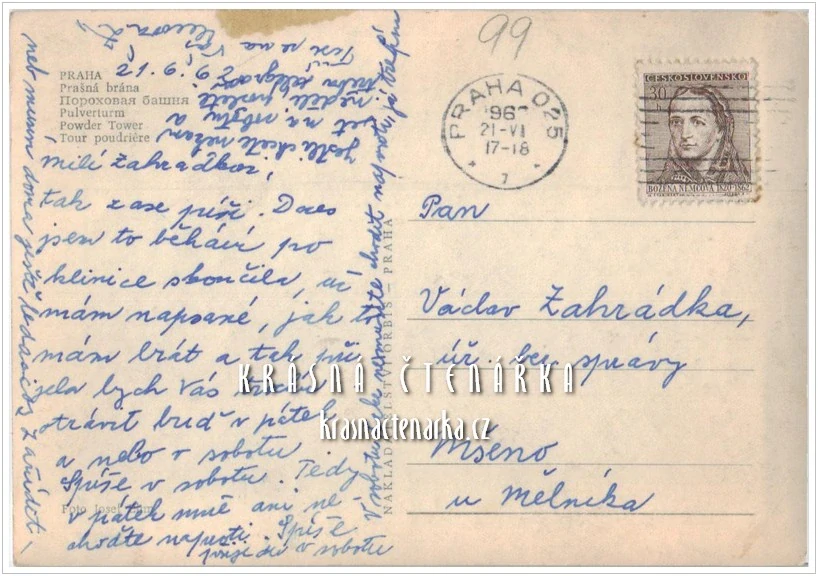 99
PRAHA
Prašná brána
Пороховая башня
Pulverturm
Powder Tower
Tour poudrière
21.6.62
milí Zahrádkovi,
tak zase píši. Dnes
jsem to běhání po
klinice skončila, už
mám napsané, jak to
mám brát a tak při
jela bych Vás
strávit buď v pátek
a nebo v sobotu.
Spíše v sobotu. Tedy
v pátek mně ani ne-
choďte naproti. Spíše
v sobotu
V sobotu
nemusíte chodit
neb mám doma ještě
zařídit,
jestli chcete
na sobotu a
neděli
Těší se na Vás
Foto Josef
NAKLADATELSTVÍ ORBIS – PRAHA
PRAHA 025
196
21-VI
17-18
7
ČESKOSLOVENSKO
30
BOŽENA NĚMCOVÁ 1820-1862
Pan
Václav Zahrádka,
úř. bez. správy
Mšeno
u Mělníka
KRÁSNÁ ČTENÁŘKA
krasnactenarka.cz